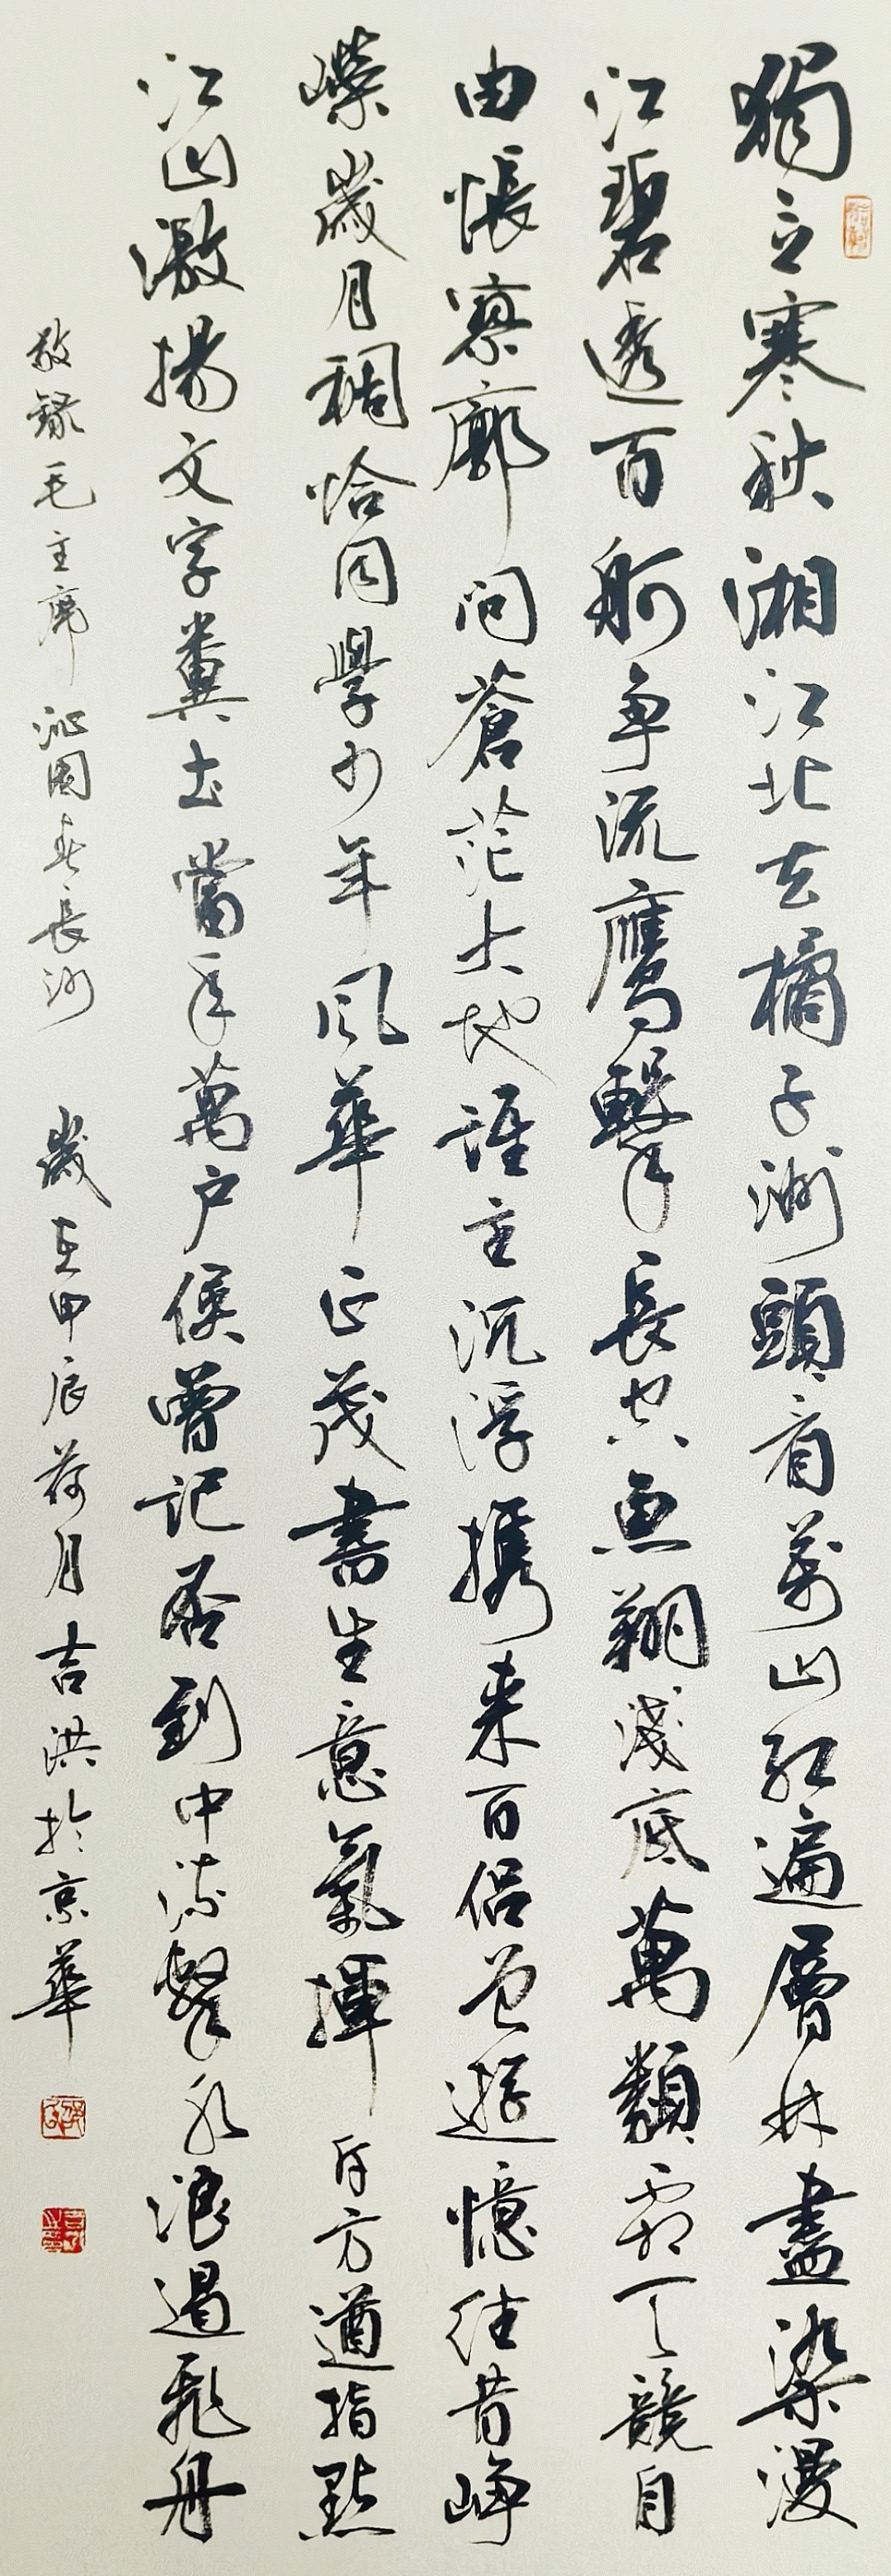 獨立寒秋湘江北去橘子洲頭看萬山紅遍層林盡染漫
江碧透百舸争流鷹擊長空魚翔淺底萬類霜天競自
由悵寥廓問蒼茫大地誰主沉浮攜来百侣曾遊憶往昔崢
嶸歲月稠恰同學少年風華正茂書生意氣揮斥方遒指點
江山激揚文字糞土當年萬户侯曾記否到中流擊水浪遏飛舟
敬錄毛主席沁園春長沙 歲在甲辰荷月吉洪於京華